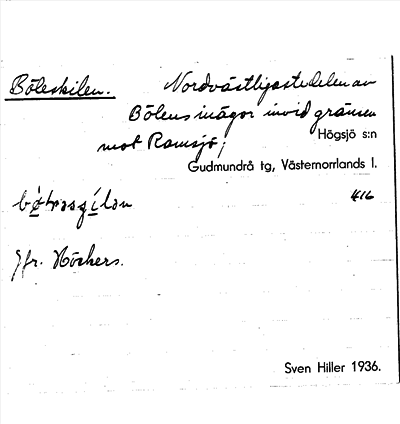 Böleskilen.
Nordvästligaste delen av
Bölens inägor invid gränsen
mot Ramsjö;
Högsjö s:n
Gudmundrå tg, Västernorrlands l.
416
Jfr. Höckers.
Sven Hiller 1936.